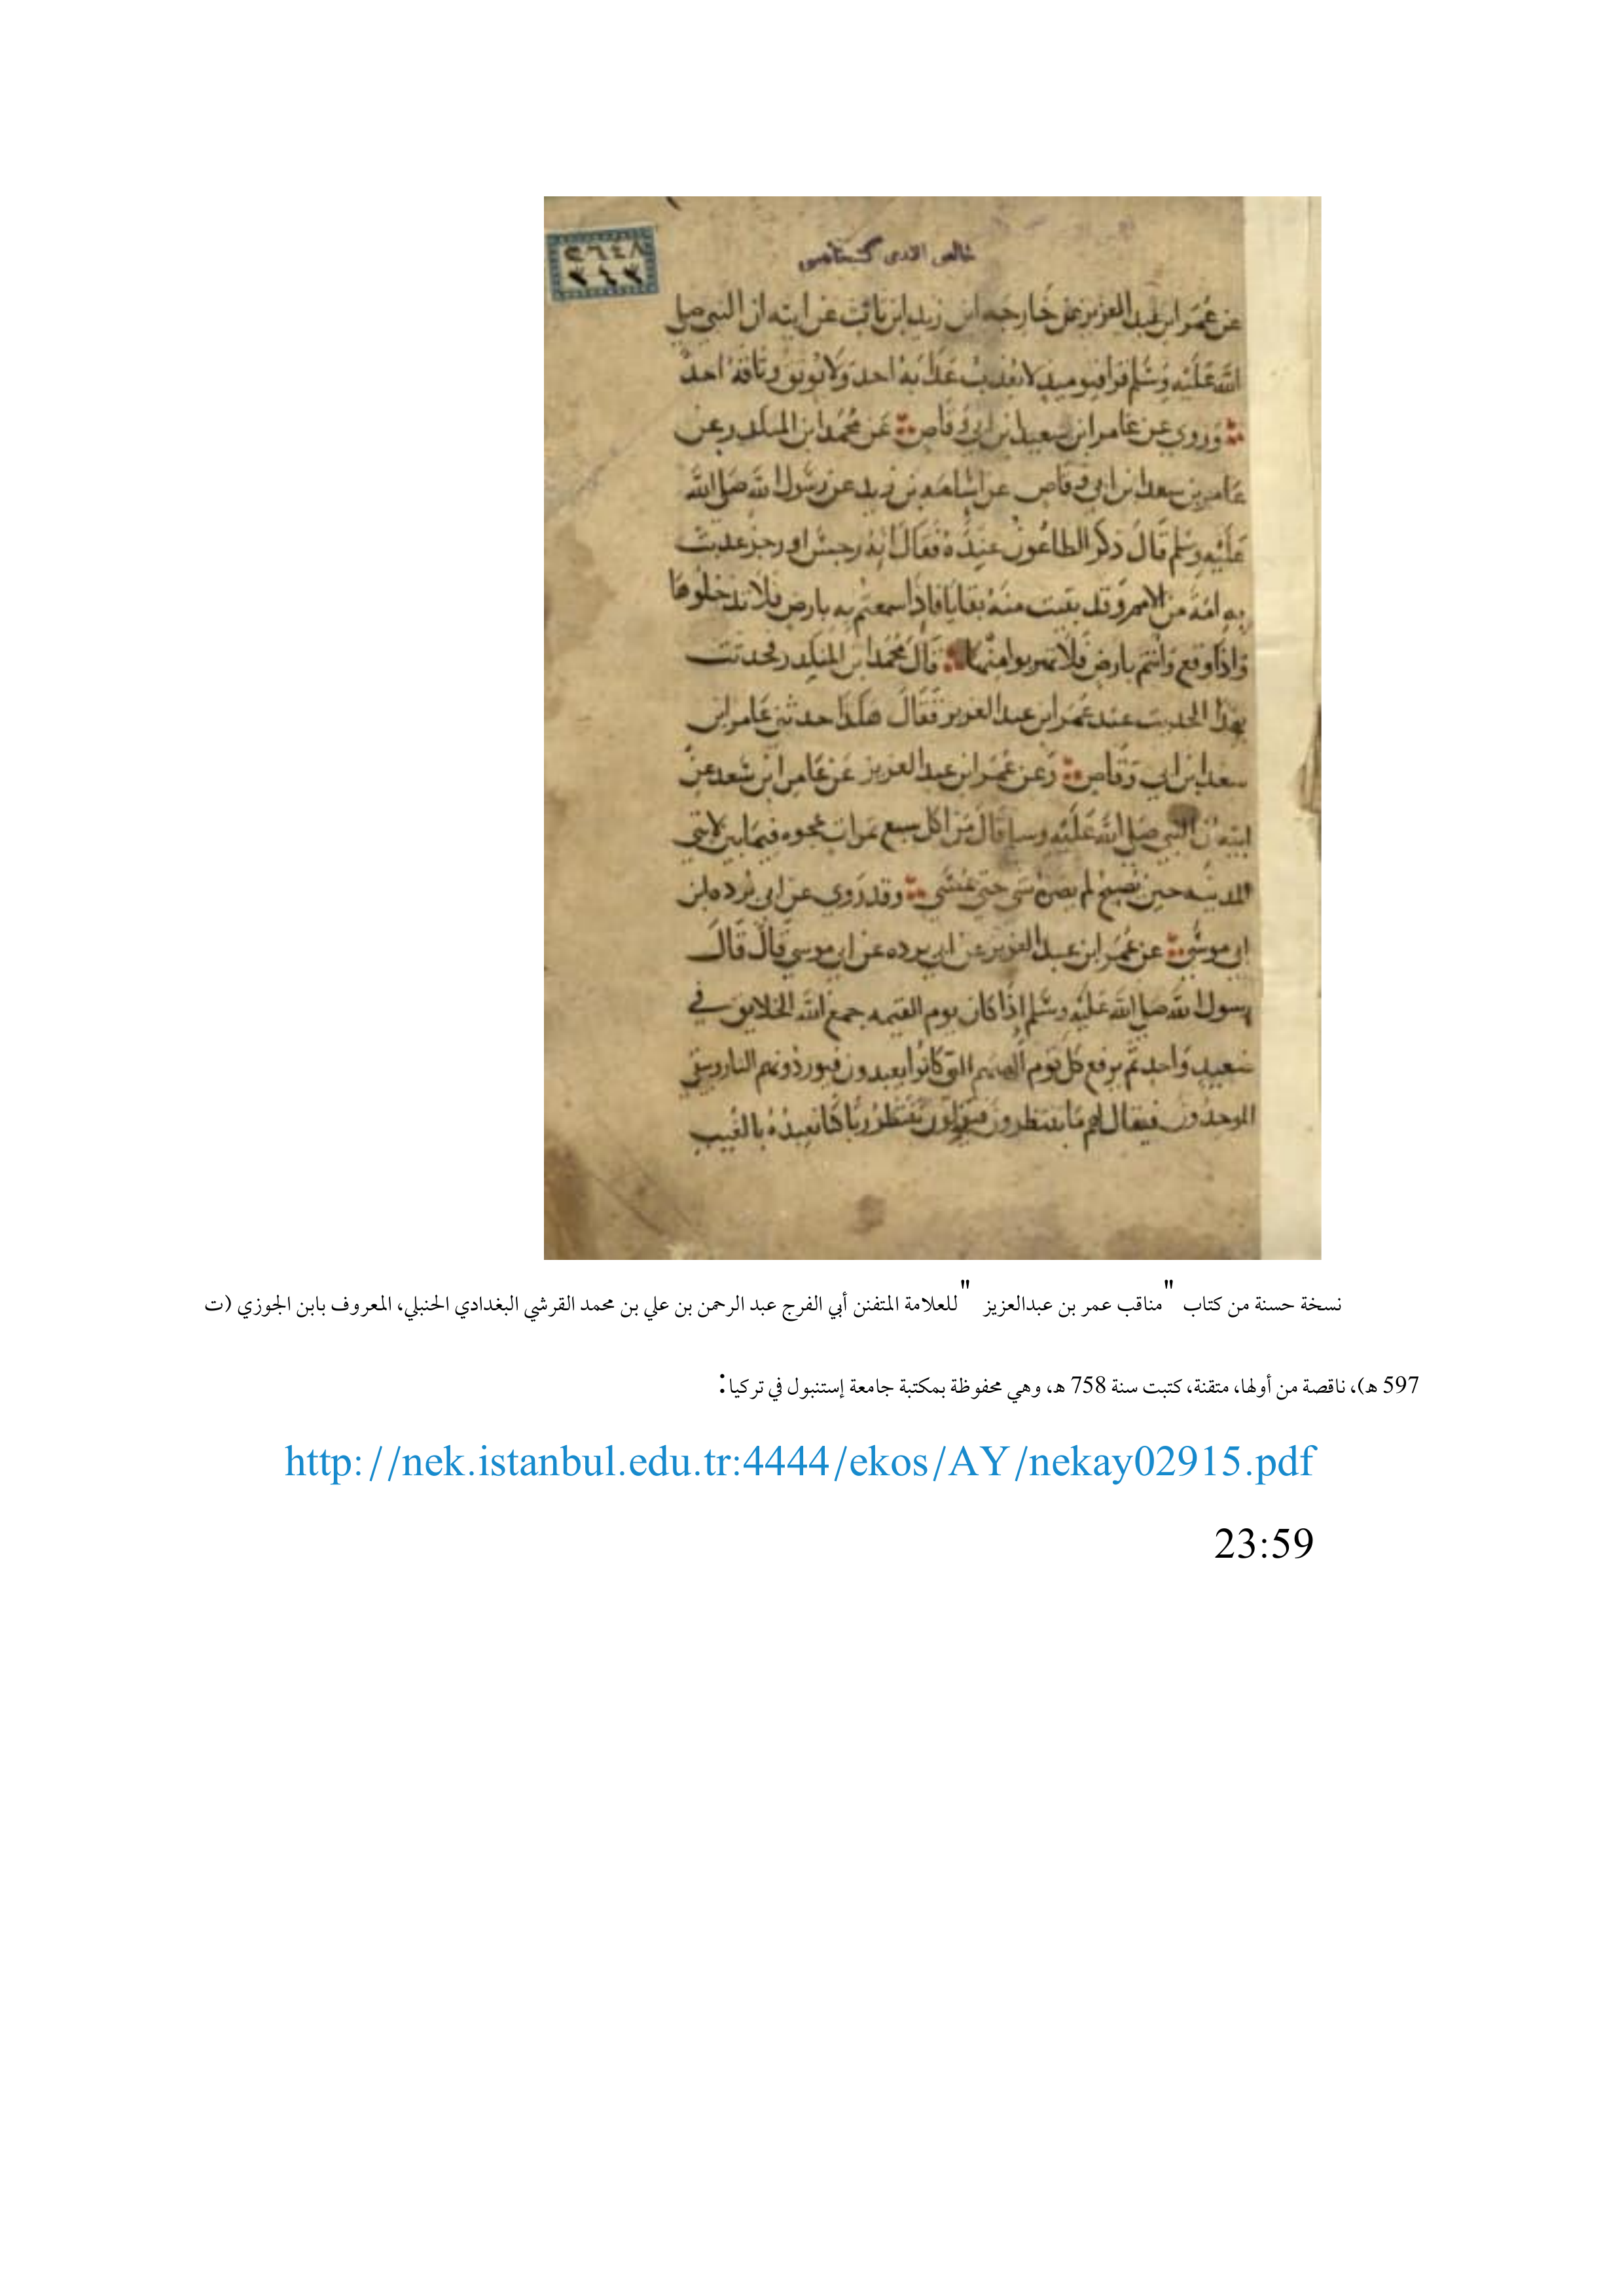 ٥٦٤٨
٣٤٣
خالص افندی كتبخانه‌سی
عن عمر ابن عبد العزيز عن خارجه ابن زيد ابن ثابت عن ابيه ان النبي صلى
الله عليه وسلم قرا فيوميذ لا يعذب عذابه احد ولا يوثق وثاقه احد
وروي عن عامر ابن سعد ابن ابي وقاص عن محمد ابن المنكدر عن
عامر بن سعد ابن ابي وقاص عن اسامه بن زيد عن رسول الله صلى الله
عليه وسلم قال ذكر الطاعون عنده فقال انه رجس او رجز عذبت
به امة من الامم وقد بقيت منه بقايا فاذا سمعتم به بارض فلا تدخلوها
واذا وقع وانتم بارض فلا تهربوا منها قال محمد ابن المنكدر فحدثت
بهذا الحديث عند عمر ابن عبد العزيز فقال هكذا حدثني عامر ابن
سعد ابن ابي وقاص وعن عمر ابن عبد العزيز عن عامر ابن سعد عن
ابيه ان النبي صلى الله عليه وسلم قال من اكل سبع تمرات عجوه فيما بين لابتي
المدينه حين يصبح لم يضره شي حتى يمسي وقد روي عن ابي برده ابن
ابي موسى عن عمر ابن عبد العزيز عن ابي برده عن ابي موسى قال قال
رسول الله صلى الله عليه وسلم اذا كان يوم القيمه جمع الله الخلايق في
صعيد واحد ثم يرفع لكل قوم الهتهم التي كانوا يعبدون فيوردونهم النار ويبقى
الموحدون فيقال لهم ما تنتظرون فيقولون ننتظر ربا كنا نعبده بالغيب
نسخة حسنة من كتاب "مناقب عمر بن عبدالعزيز " للعلامة المتفنن أبي الفرج عبد الرحمن بن علي بن محمد القرشي البغدادي الحنبلي، المعروف بابن الجوزي (ت
597 هـ)، ناقصة من أولها، متقنة، كتبت سنة 758 هـ، وهي محفوظة بمكتبة جامعة إستنبول في تركيا:
http://nek.istanbul.edu.tr:4444/ekos/AY/nekay02915.pdf
23:59